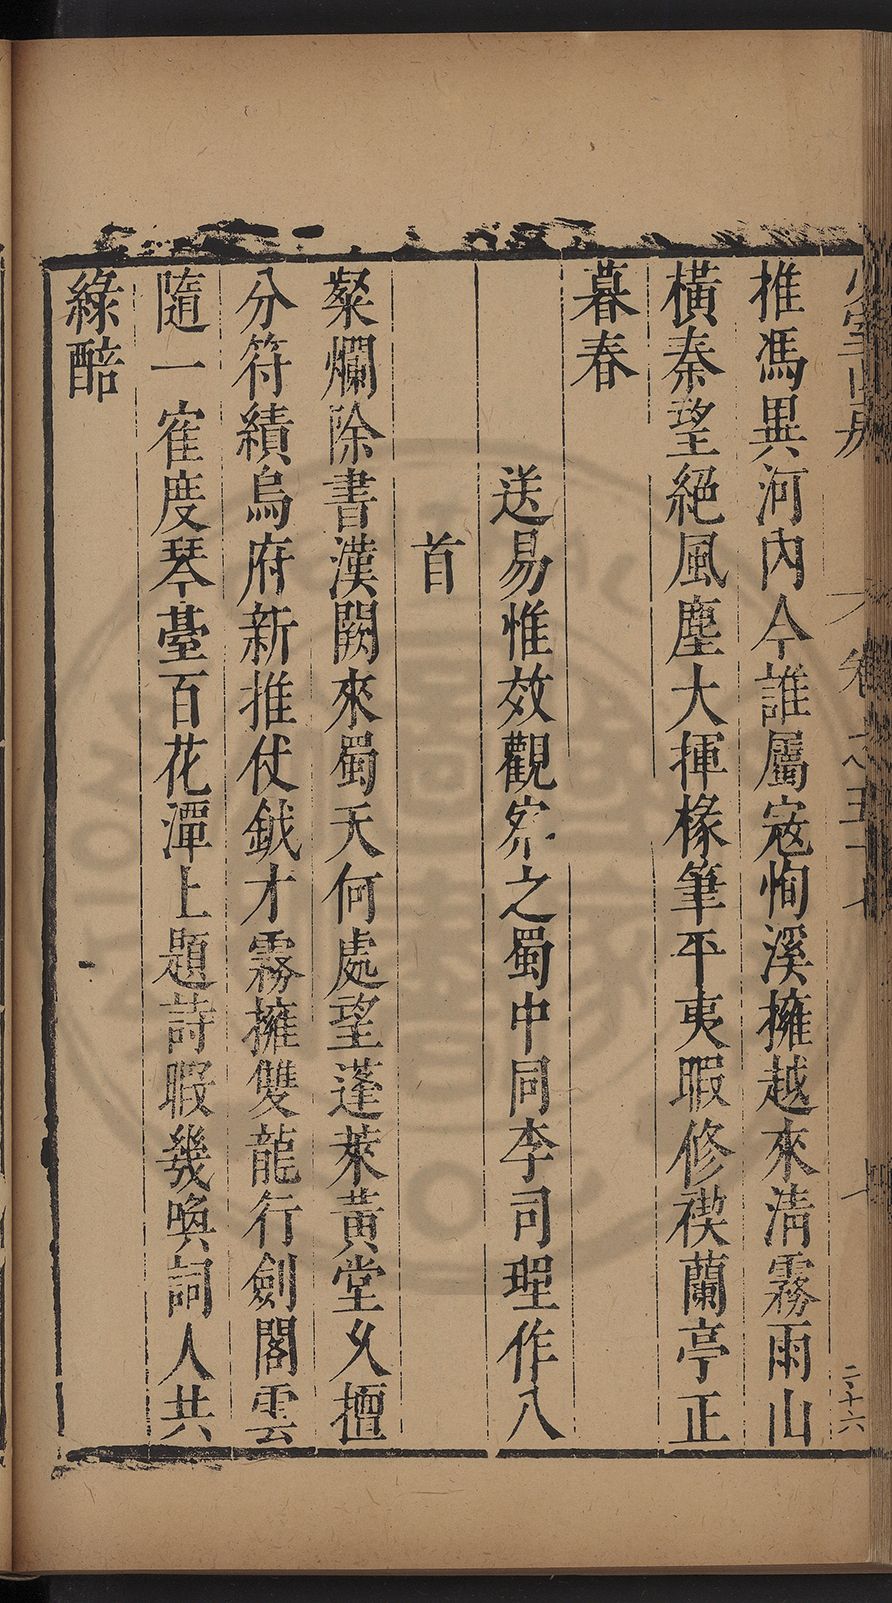 少室山房
卷之五十
二十六
推馮異河內今誰屬寇恂溪擁越來清霧雨山
橫秦望絕風塵大揮椽筆平夷暇修禊蘭亭正
暮春
送易惟效觀察之蜀中同李司理作八
首
粲爛除書漢闕來蜀天何處望蓬萊黃堂乆擅
分符績烏府新推仗鉞才霧擁雙龍行劍閣雲
隨一隺度琴臺百花潭上題詩暇幾喚詞人共
綠醅